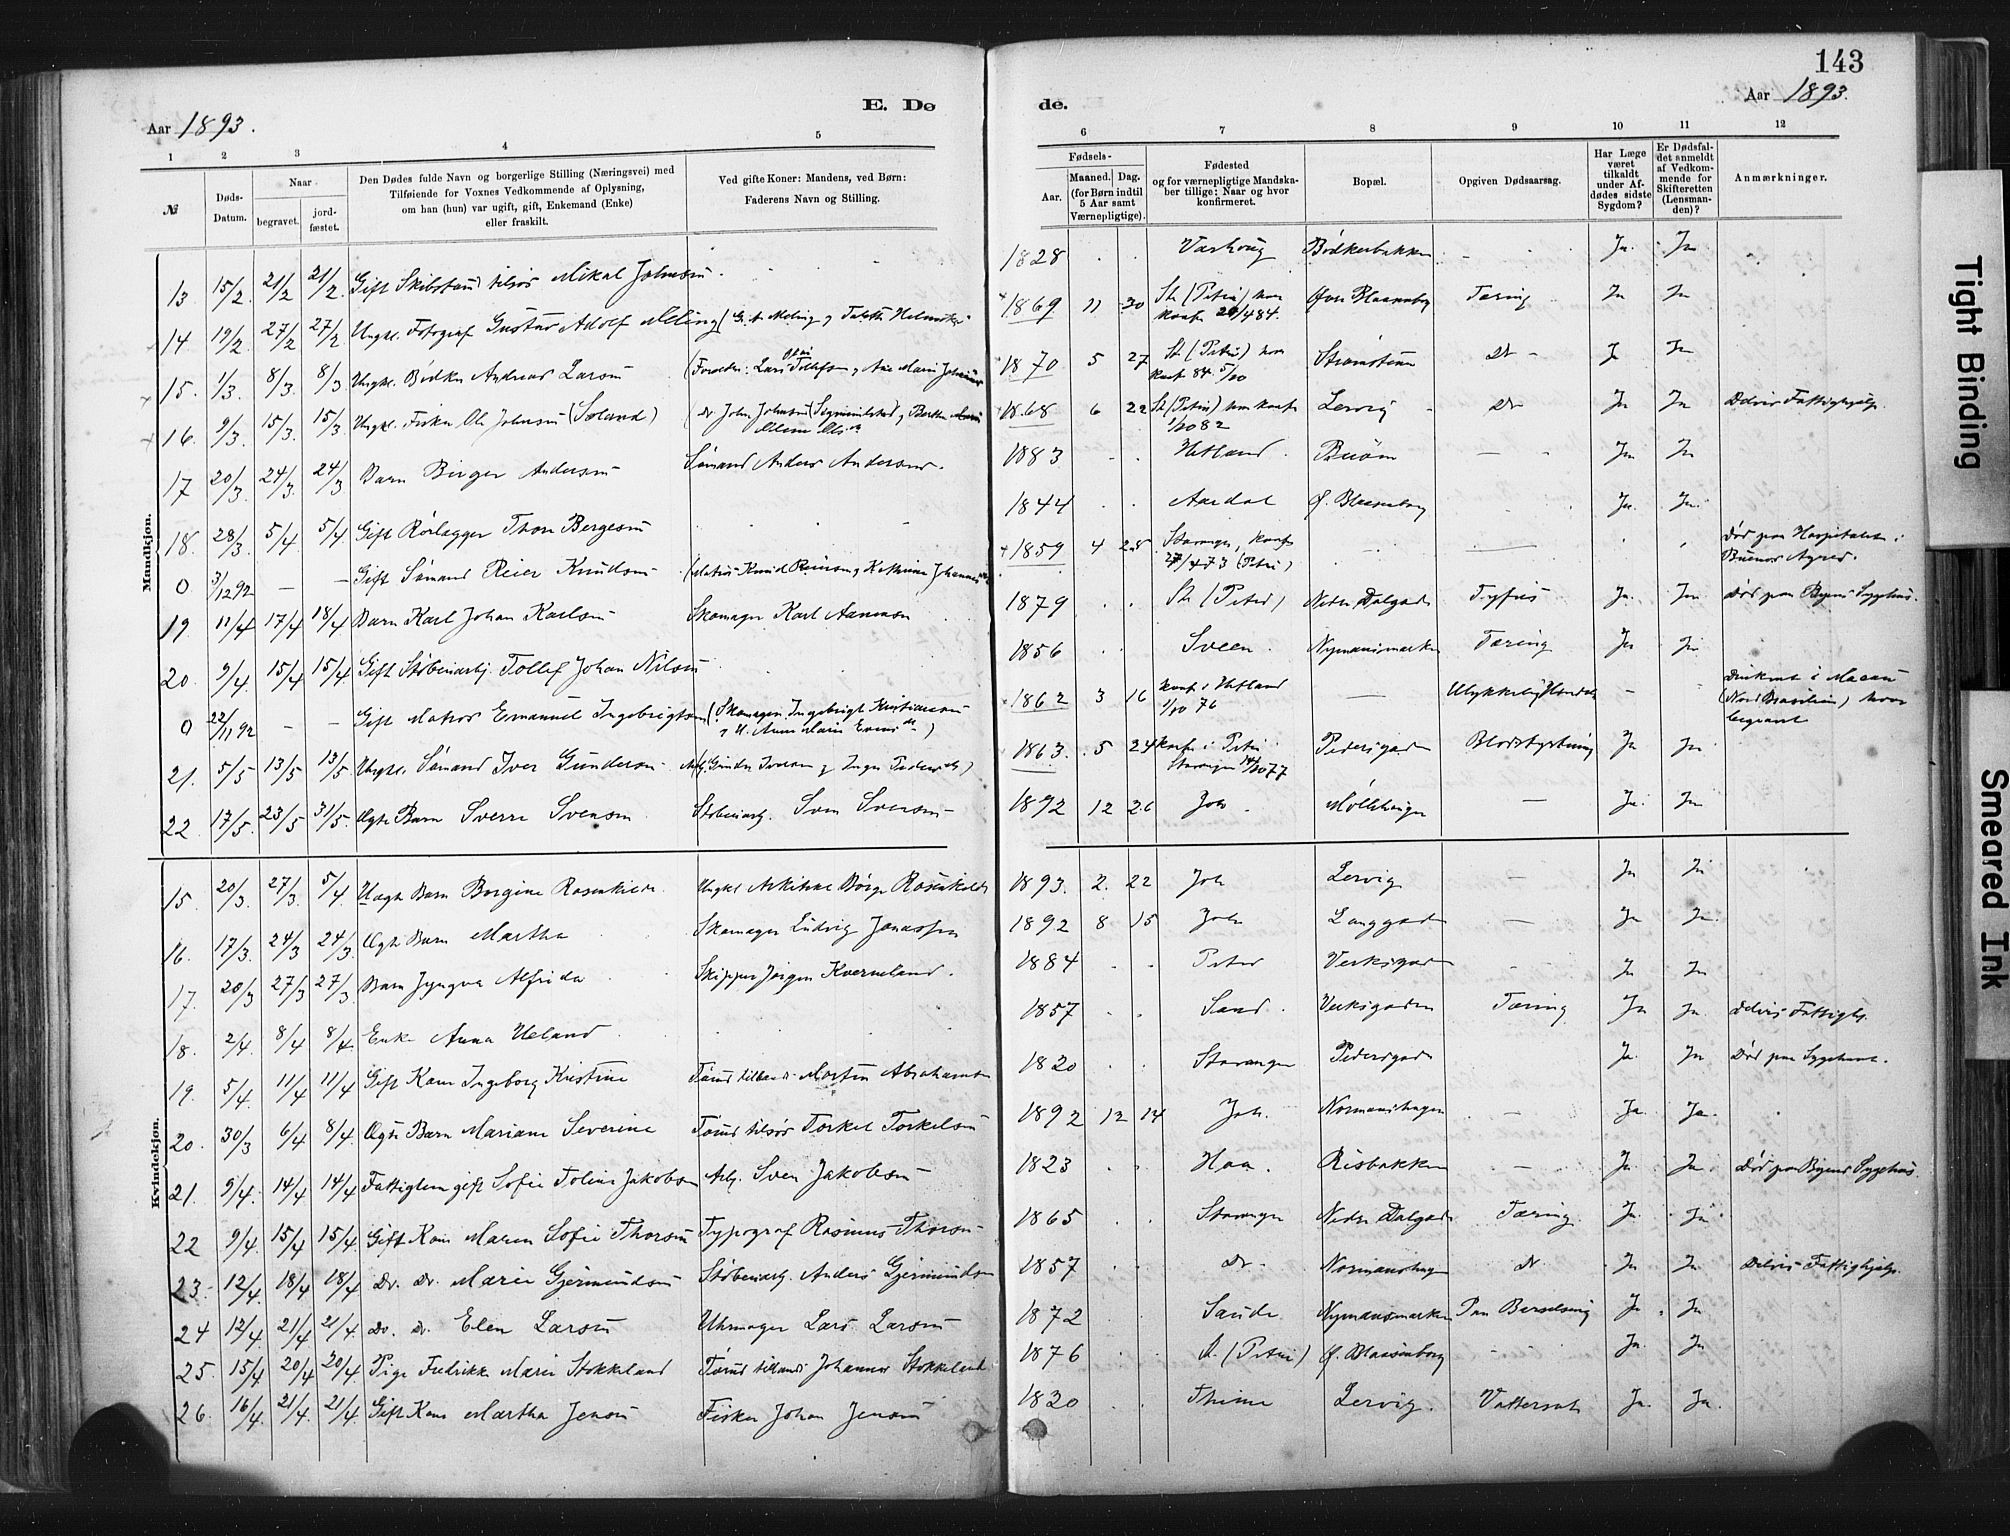 143
E. Dø
de.
Aar 1893.
Aar 1893.
1 2 3 4 5 6 7 8 9 10 11 12
№
Døds-Datum.
Naar
begravet.
jord-fæstet.
Den Dødes fulde Navn og borgerlige Stilling (Næringsvei) med
Tilføiende for Voxnes Vedkommende af Oplysning,
om han (hun) var ugift, gift, Enkemand (Enke)
eller fraskilt.
Ved gifte Koner: Mandens, ved Børn:
Faderens Navn og Stilling.
Fødsels-
Aar.
Maaned. Dag.
(for Børn indtil
5 Aar samt
Værnepligtige).
Fødested
og for værnepligtige Mandska-
ber tillige: Naar og hvor
konfirmeret.
Bopæl.
Opgiven Dødsaarsag.
Har Læge
været
tilkaldt
under Af-
dødes sidste
Sygdom?
Er Dødsfal-
det anmeldt
af Vedkom-
mende for
Skifteretten
(Lensman-
den)?
Anmærkninger.
Mandkjøn.
13. 15/2. 21/2 21/2. Gift Mikal Johnsen 1828 Bødkerbakken Ja. Ja
14 19/2. 27/2 27/2 Ungk. Fotograf Gustav Adolf Meling 1869 11 30 St. (Petri) Tæring Ja Ja
15. 1/3. 8/3 8/3 Ungk. Bødker Andreas Larsen 1870 5 27 St. (Petri) Do Ja Ja
16. 9/3. 15/3. 15/3. Ungk. Fisker Ole Johnsen (Soland) 1868 6 22 St. (Petri) Lervig Do Ja Ja Delvis Fattighjælp.
17 20/3. 24/3. 24/3 Barn Birger Andersen Sømand Anders Andersen. 1883 Hetland Buøen Ja Ja
18. 28/3. 5/4 5/4. Gift Rørlægger Thore Bergesen 1844 Aardal Ø. Blaasenborg Ja. Ja.
0 3/12 92 — — Gift Sømand Reier Knudsen 1859 4 25 Stavanger, konf. (Petri) Død paa Hospitalet i Buenos Ayres.
19. 11/4 17/4 18/4 Barn Karl Johan Karlsen Skomager Karl 1879 St. (Petri) Nedre Dalgade Tyfus Ja. Ja Død paa Byens Sygehus.
20. 9/4. 15/4 15/4. Gift Støberiarb. Tollef Johan Nilsen 1856 Sveen. Nymansmarken Tæring Ja Ja
0 22/11 92 — — Gift Matros Emanuel Ingebrigtsen (Skomager Ingebrigt Kristiansen 1862 3 16 konf. i Hetland 1/10 76 —
21. 5/5 13/5 13/5. Ungk. Sømand Iver Gundersen 1863. 5 24 konf. i Petri Stavanger Pedersgaden Blodstyrtning Ja Ja
22. 17/5. 23/5 31/5. Ægte Barn Sverre Svensen Støberiarb. Sven Svensen 1892 12 26 Joh. — Ja. Ja
Kvindekjøn.
15. 20/3. 27/3. 5/4. Uægte Barn Bergine Rosenkilde 1893. 2. 22 Joh Lervig — Ja Ja
16. 17/3. 24/3 24/3. Ægte Barn Martha Skomager Ludvig Jonassen 1892 8 15 Joh Langgaden — Ja Ja.
17. 20/3 27/3 27/3 Barn Alfrida Skipper Jørgen Kverneland. 1884 Petri Verksgaden Ja Ja
18. 2/4. 8/4 8/4. Enke Anna Ueland 1857 Sand. Verksgaden Tæring Ja Ja. Delvis Fattigh.
19. 5/4. 11/4 11/4 Gift Kone Ingeborg Kristine Morten Abrahamsen 1820 Stavanger Pedersgade Ja. Ja Død paa Sygehuset.
20. 30/3 6/4 8/4. Ægte Barn Mariane Severine Torkel Torkelsen 1892 12 14 Joh. Normanshagen — Ja. Ja.
21. 9/4. 14/4 14/4 Fattiglem gift Sofie Toline Jakobsen Arb. Sven Jakobsen 1823 Haa. Risbakken — Ja. Ja. Død paa Byens Sygehus.
22 9/4. 15/4 15/4 Gift Kone Maren Sofie Thorsen Typograf Rasmus Thorsen 1865 Stavanger Nedre Dalgade Tæring. Ja. Ja.
23. 12/4. 18/4 18/4 Do. Do. Marie Gjermundsen Støberiarb. Anders Gjermundsen 1857 Do. Normanshagen Do. Ja Ja Delvis Fattighjælp.
24 12/4. 21/4 21/4. Do. Do. Elen Larsen Uhrmager Lars Larsen 1872 Saude Nymansmarken Paa Barselseng Ja Ja
25. 15/4 20/4 20/4 Pige Fredrikke Marie Stokkeland Johannes Stokkeland 1876 St. (Petri) Ø. Blaasenborg Ja. Ja
26. 16/4. 21/4. 21/4. Gift Kone Martha Jensen Fisker Johan Jensen 1820 Thime Lervig. Vattersot Ja. Ja.
Tight Binding
Smeared Ink